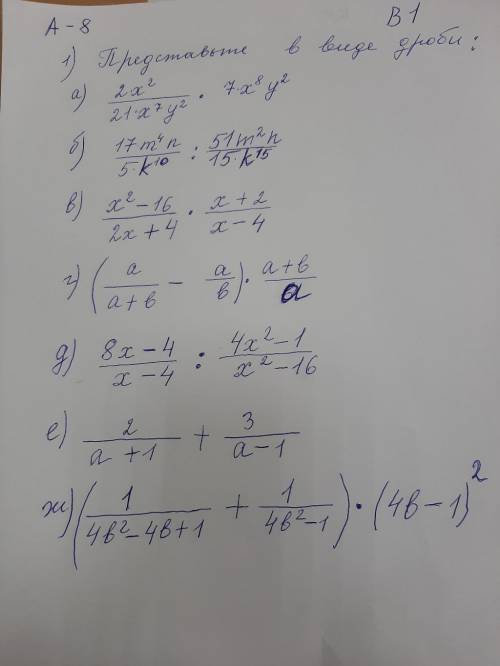 А-8 В1
1) Представьте в виде дроби:
а) \frac{2x^2}{21·x^7y^2} · 7x^8y^2
б) \frac{17m^4n}{5·k^{10}} : \frac{51m^2n}{15·k^{15}}
в) \frac{x^2-16}{2x+4} · \frac{x+2}{x-4}
г) (\frac{a}{a+в} - \frac{a}{в}) · \frac{a+в}{a}
д) \frac{8x-4}{x-4} : \frac{4x^2-1}{x^2-16}
е) \frac{2}{a+1} + \frac{3}{a-1}
ж) (\frac{1}{4в^2-4в+1} + \frac{1}{4в^2-1}) · (4в-1)^2